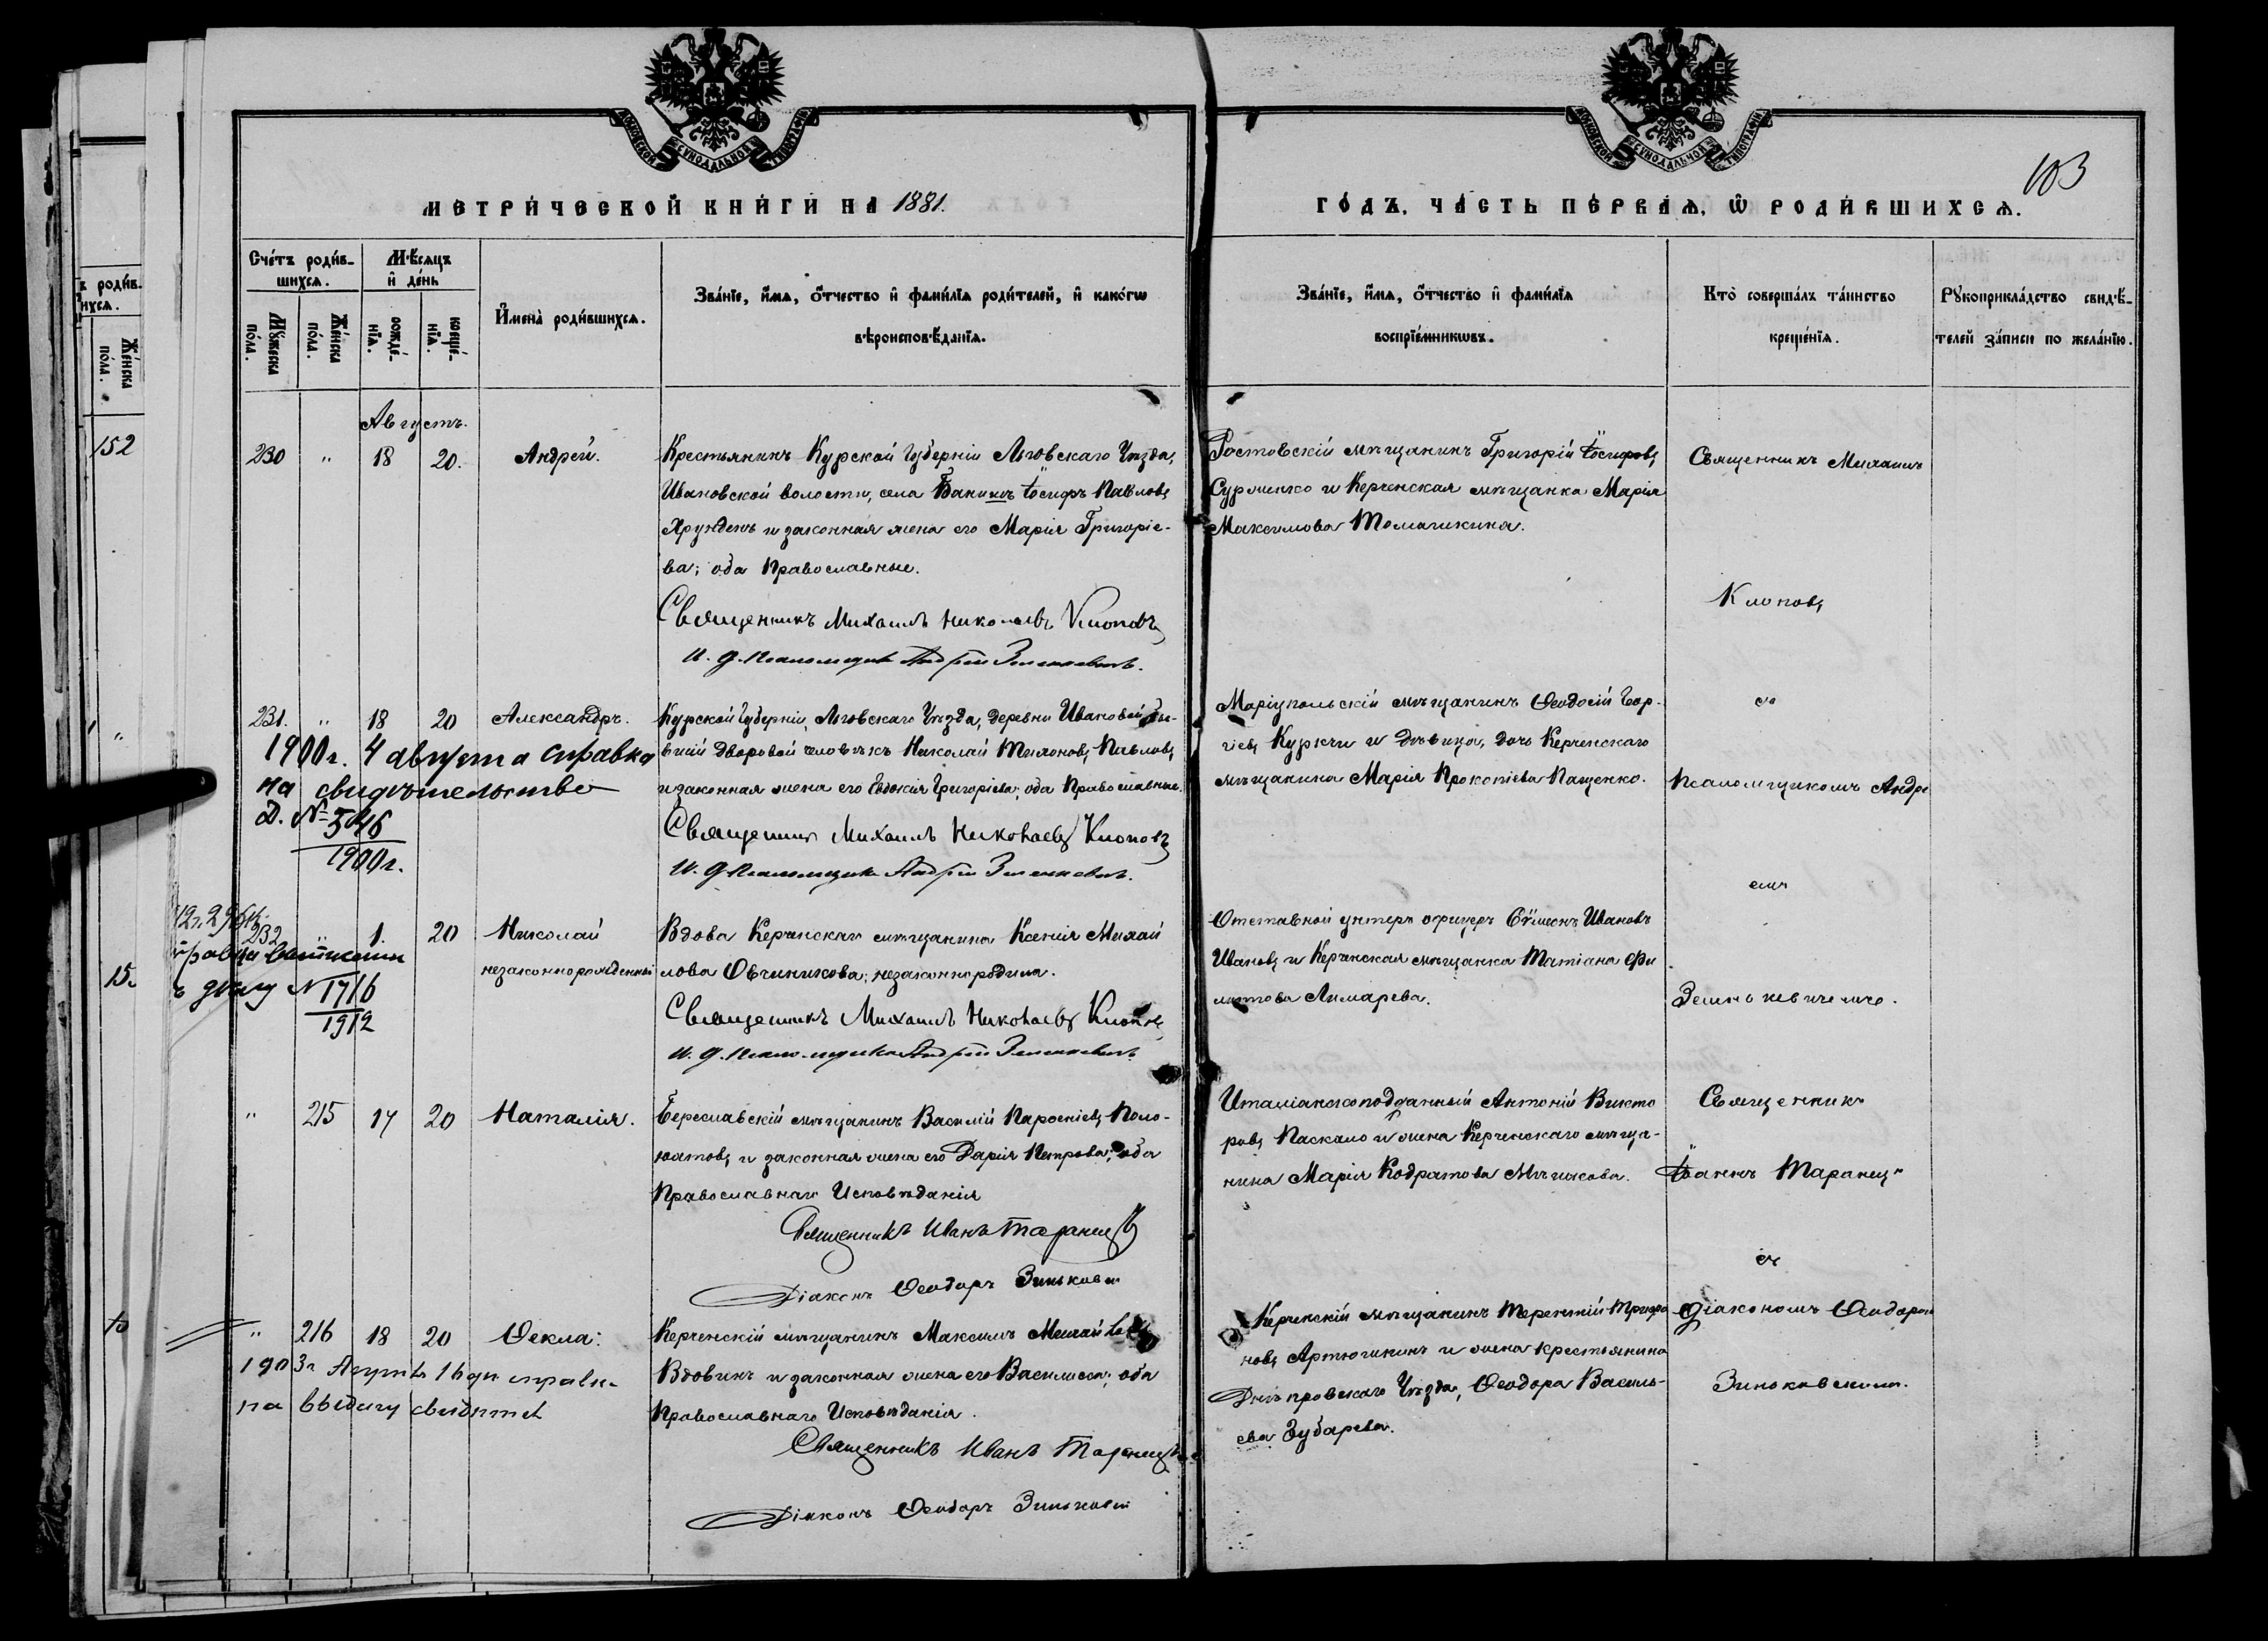 МЕТРИ́ЧЕСКОЙ КНИ́ГИ НА 1881.
ГО́ДЪ, ЧА́СТЬ ПЕ́РВАѦ, Ѡ РОДИ́ВШИХСѦ.
103
Сче́тъ роди́в-
шихсѧ.
Мꙋ́жеска по́ла.
Же́нска по́ла.
Мѣ́сяцъ и де́нь
рожде́-
нїѧ.
креще́-
нїѧ.
И́мена̀ роди́вшихсѧ.
Зва́нїе, и́мѧ, ѻ́тчество и фами́лїѧ роди́телей, и како́гѡ
вѣроисповѣ́данїѧ.
Зва́нїе, и́мѧ, ѻ́тчество и фами́лїѧ
воспрїе́мникѡвъ.
Кто̀ соверша́лъ та́инство
креще́нїѧ.
Рꙋкоприкла́дство свидѣ́-
телей за́писи по жела́нїю.
Августъ.
230 " 18 20. Андрей.
Крестьянинъ Курской Губерніи Льговскаго Уѣзда,
Ивановской волости, села Іосифъ Павловъ
и законная жена его Марія Григорье-
ва; оба Православные.
Священникъ Михаилъ Николаевъ Клоповъ
И. д. Псаломщика Андрей Зенькевичъ.
Ростовскій мѣщанинъ Григорій Іосифовъ
Сурженко и Керченская мѣщанка Марія
Максимова Томашкина.
Священникъ Михаилъ
Клоповъ
231. " 18 20 Александръ.
Курской Губерніи, Льговскаго Уѣзда, деревни Ивановой бы-
вшій дворовой человѣкъ Николай Тихоновъ Павловъ
и законная жена его Евдокія Григорьева; оба Православные.
Священникъ Михаилъ Николаевъ Клоповъ
И. д. Псаломщика Андрей Зенькевичъ.
Маріупольскій мѣщанинъ Ѳеодосій Геор-
гіевъ Куркчи и дѣвица, дочь Керченскаго
мѣщанина Марія Прокопіева Пащенко.
съ
Псаломщикомъ Андре
емъ
1900 г. 4 августа справка
на свидѣтельство
д. № 546
1900 г.
232 " 1. 20 Николай
незаконнорожденный
Вдова Керченскаго мѣщанина Ксенія Михай
лова Овчинникова; незаконно родила.
Священникъ Михаилъ Николаевъ Клоповъ
И. д. Псаломщика Андрей Зенькевичъ
Отставной унтеръ офицеръ Сѵмеонъ Ивановъ
Ивановъ и Керченская мѣщанка Татіана Фи
липова Лимарева.
Зенькевичемъ.
дѣлу № 1716
1912
" 215 17 20 Наталія.
Береславскій мѣщанинъ Василій Парѳеніевъ Поло-
хатовъ и законная жена его Дарія Петрова; оба
Православнаго Исповѣданія
Священникъ Иванъ Таранецъ
Діаконъ Ѳеодоръ Зиньковскій
Италіанскоподданный Антоній Викто
ровъ Паскало и жена Керченскаго мѣща-
нина Марія Кодратова Мѣшкова.
Священникъ
Іоаннъ Таранецъ
съ
" 216 18 20 Ѳекла:
Керченскій мѣщанинъ Максимъ Михайловъ
Вдовинъ и законная жена его Василиса; оба
Православнаго Исповѣданія.
Священникъ Иванъ Таранецъ
Діаконъ Ѳеодоръ Зиньковскій
Керченскій мѣщанинъ Терентій Трифо
новъ Артюшкинъ и жена крестьянина
Днѣпровскаго Уѣзда, Ѳеодора Василь-
ева Зубарева.
Діакономъ Ѳеодоромъ
Зиньковскимъ.
1903 г. Августа 16 дн. справк.
на выдачу свидѣтел
152